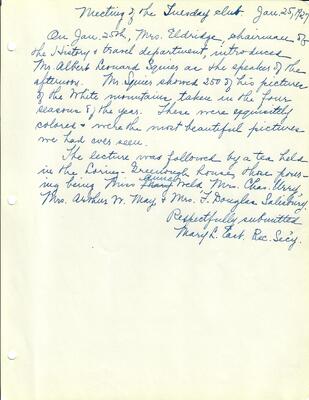 Meeting of the Tuesday club Jan. 25, 1927
On Jan. 25th, Mrs. Eldridge, chairman of
the History & travel department, introduced
Mr. Albert Leonard Squier as the speaker of the
afternoon. Mr. Squier showed 250 of his pictures
of the White mountains, taken in the four
seasons of the year. These were exquisitely
colored & were the most beautiful pictures
we had ever seen.
The lecture was followed by a tea held
in the Loring-Greenough house, those pour-
ing being Miss Weld, Mrs. Chas. Urry,
Mrs. Arthur W. May, & Mrs. F. Douglas Salisbury.
Respectfully submitted
Mary L. East. Rec. Sec'y.